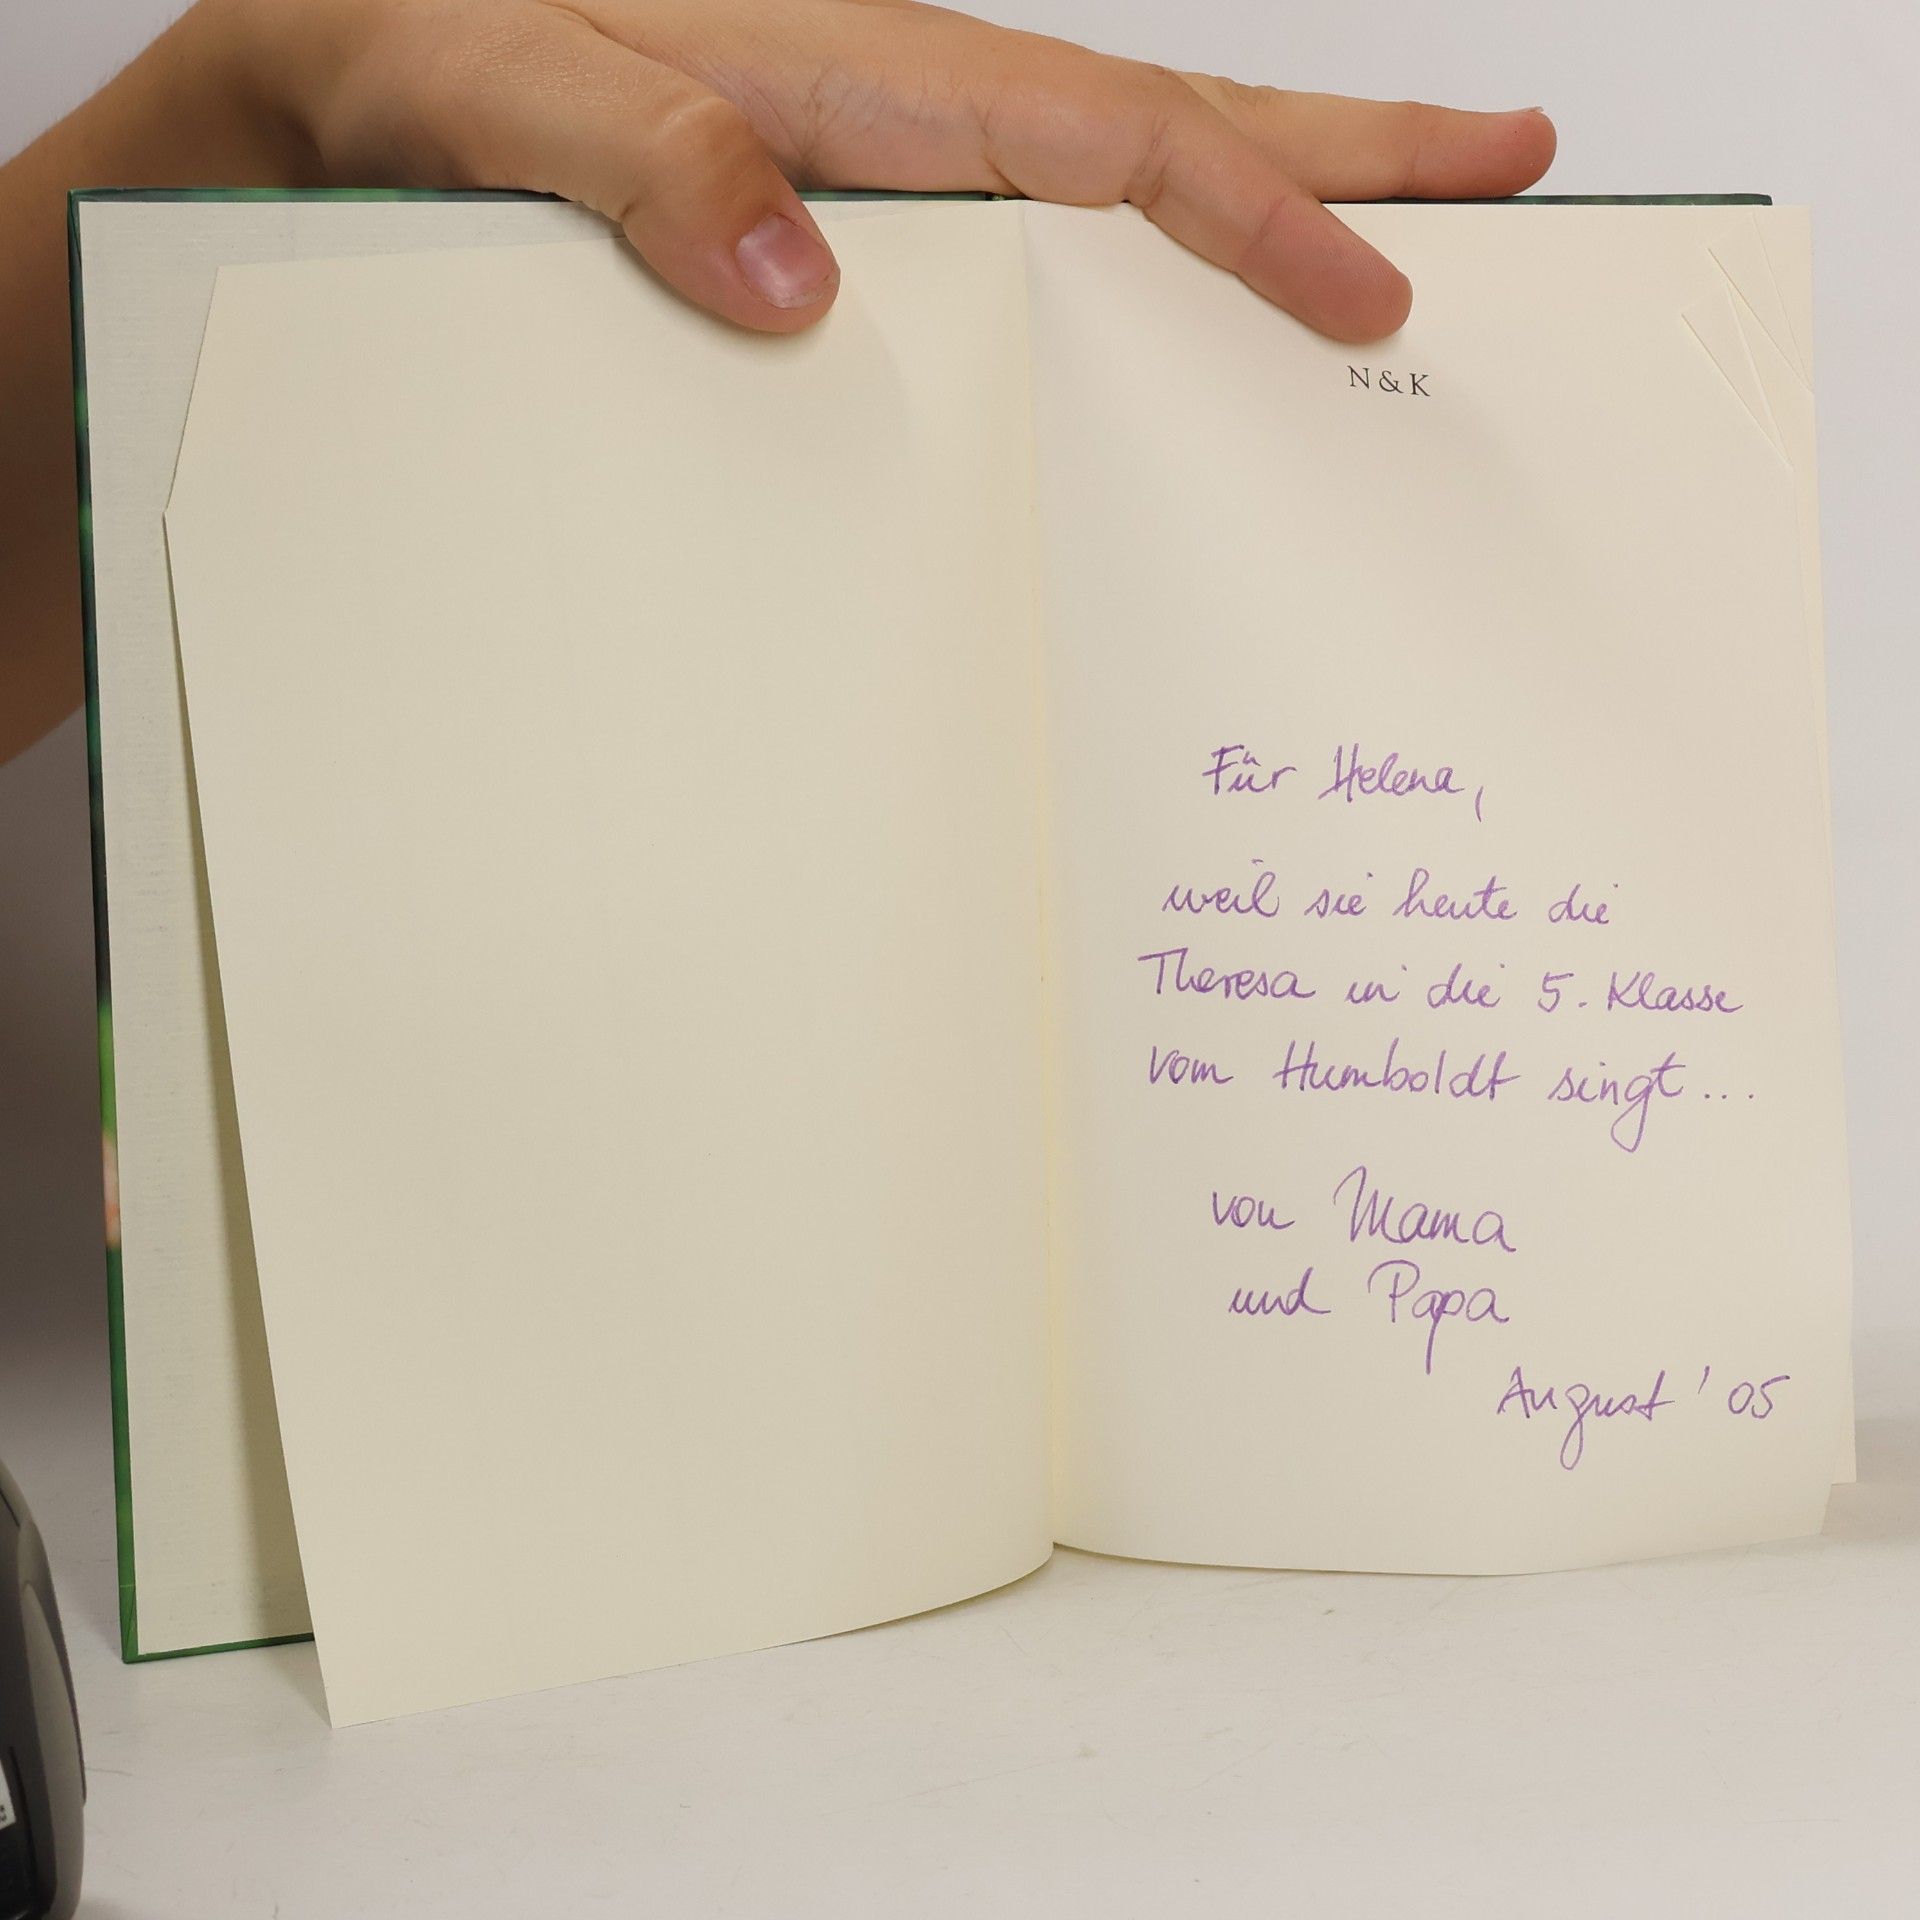 N & K
Für Helena,
weil sie heute die
Theresa in die 5. Klasse
vom Humboldt singt...
von Mama
und Papa
August '05